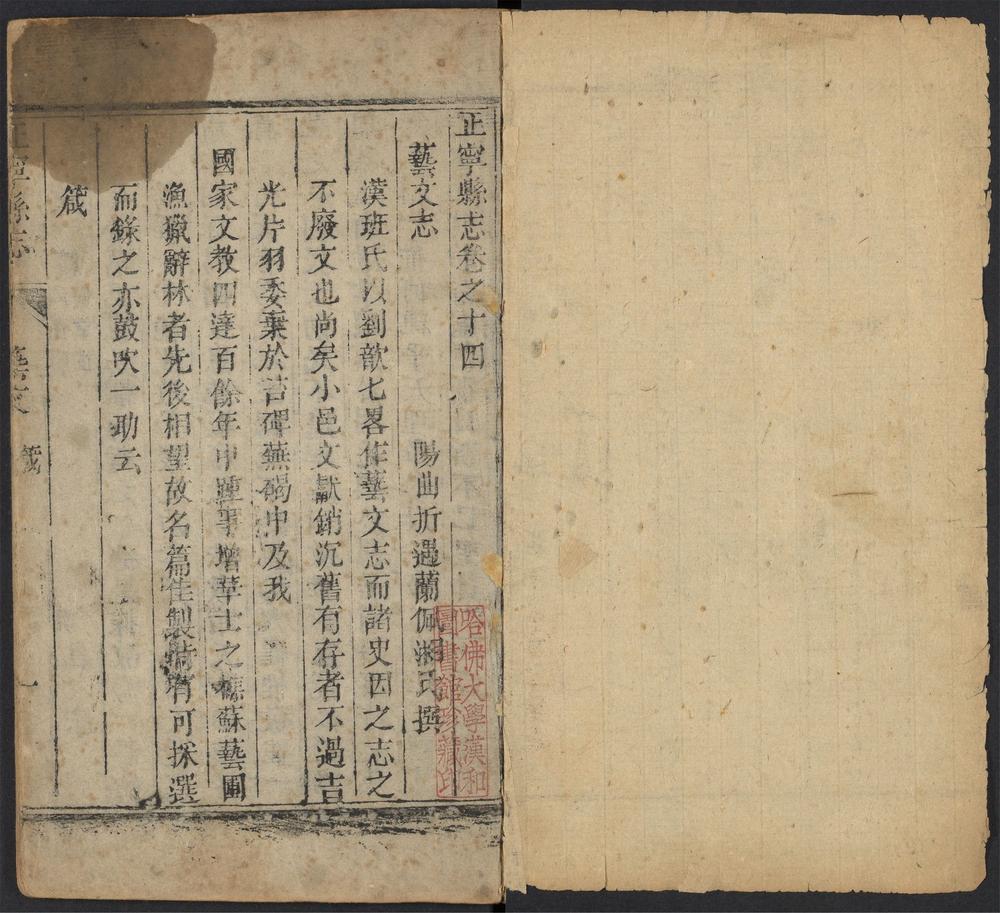 正寧縣志卷之十四
陽曲折遇蘭佩湘氏撰
藝文志
漢班氏以劉歆七畧作藝文志而諸史因之志之
不廢文也尚矣小邑文獻銷沉舊有存者不過吉
光片羽委棄於苔碑蕪碣中及我
國家文教四達百餘年中踵事增華士之樵蘇藝圃
漁獵辭林者先後相望故名篇佳製猗有可採選
而錄之亦鼓吹一助云
箴
正寧縣志
藝文
箴
一
哈佛大學漢和
圖書館珍藏印